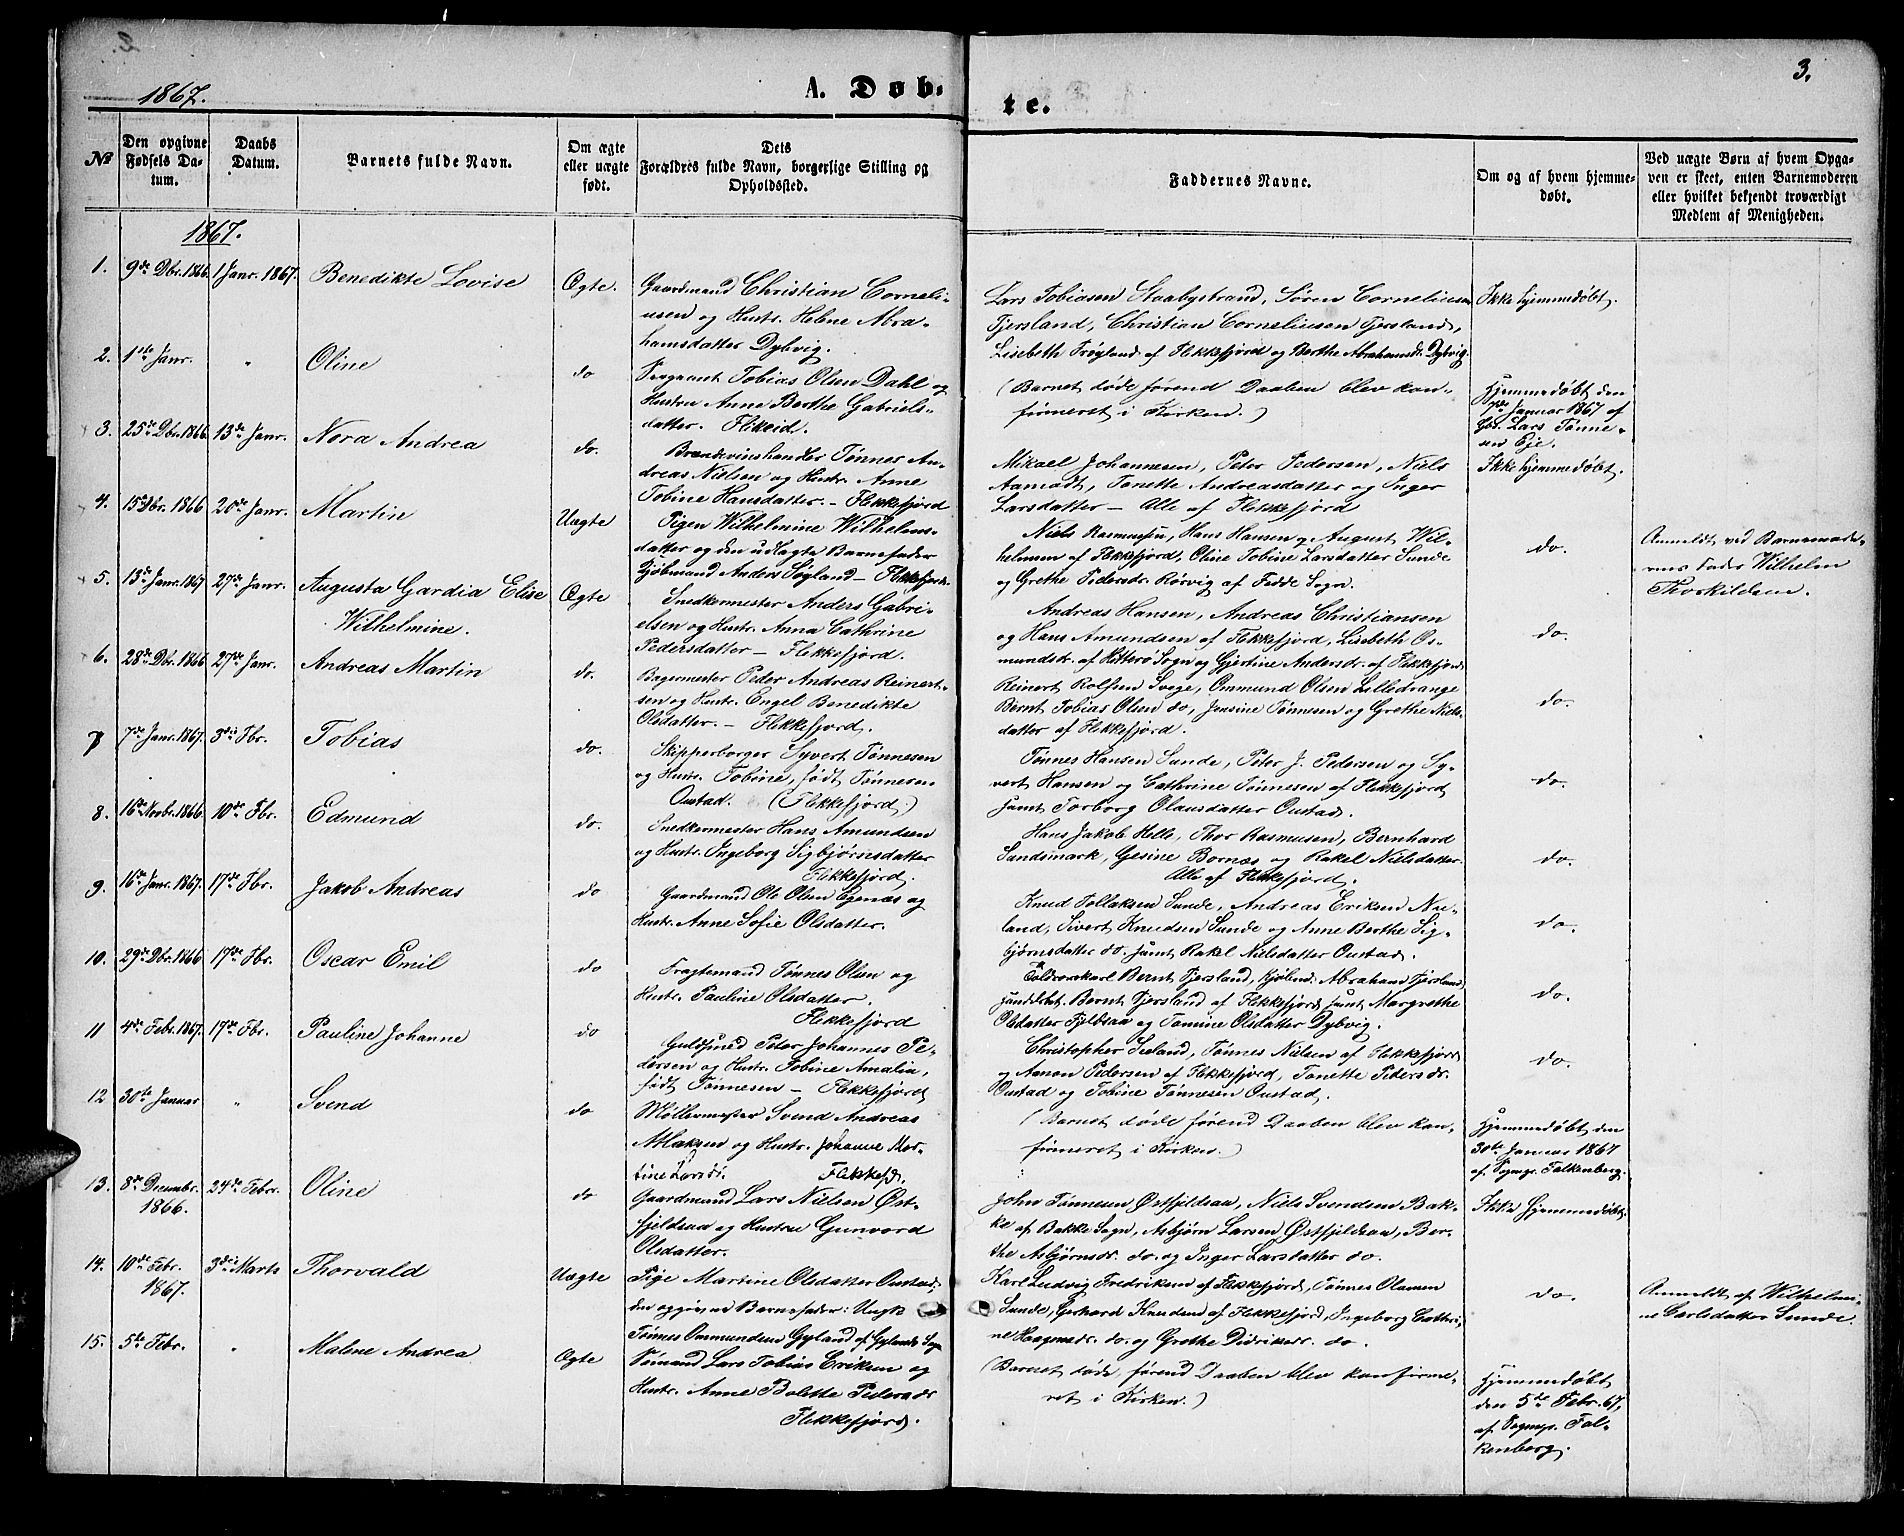 1867.
A. Døb-
te.
3.
№
Den opgivne Fødsels Da-
tum.
Daabs
Datum.
Barnets fulde Navn.
Om ægte
eller uægte
født.
Dets
Forældres fulde Navn, borgerlige Stilling og
Opholdssted.
Faddernes Navne.
Om og af hvem hjemme-
døbt.
Ved uægte Børn af hvem Opga-
ven er skeet, enten Barnemoderen
eller hvilket bekjendt troværdigt
Medlem af Menigheden.
1867.
1. 9de Dbr. 1866 1 Janr. 1867. Benedikte Lovise Ægte.
Gaardmand Christian Corneli-
usen og Hustr. Helene Abra-
hamsdatter Dybvig.
Lars Tobiasen Staabystrand, Søren Corneliusen
Tjersland, Christian Corneliusen Tjersland,
Lisebeth Frøyland af Flekkefjord og Berthe Abrahamsdr. Dybvig.
Ikke hjemmedøbt.
2. 1ste Janr. " Oline do
Sergeant Tobias Olsen Dahl og
Hustru Anne Berthe Gabriels-
datter. Flikeid.
(Barnet døde førend Daaben blev kon-
firmeret i Kirken.)
Hjemmedøbt den
7de Januar 1867 af
Gbr. Lars Tønne-
sen Eje.
3. 25de Dbr. 1866 13de Janr. Nora Andrea do.
Brændevinshandler Tønnes An-
dreas Nielsen og Hustr. Anne
Tobine Hansdatter. - Flekkefjord
Mikael Johannesen, Peter Pedersen, Niels
Aamodt, Tonette Andreasdatter og Inger
Larsdatter - Alle af Flekkefjord
Ikke hjemmedøbt.
4. 15de Dbr. 1866 20de Janr. Martin Uægte
Pigen Wilhelmine Wilhelms-
datter og den udlagte Barnefader
Kjøbmand Anders Søyland - Flekkefjord.
Niels Rasmussen, Hans Hansen og August Wil-
helmsen af Flekkefjord, Oline Tobine Larsdatter Sunde
og Grethe Pedersdr. Rørvig af Fedde Sogn.
do.
Anmeldt ved Barnemode-
rens Fader Wilhelm
Thorkildsen.
5. 13de Janr. 1867 27de Janr. Augusta Gardia Elise
Wilhelmine. Ægte
Snedkermester Anders Gabri-
elsen og Hustr. Anna Cathrine
Pedersdatter - Flekkefjord.
Andreas Hansen, Andreas Christiansen
og Hans Amundsen af Flekkefjord, Lisebeth Os-
mundsdr. af Hitterø Sogn og Gjertine Andersdr. af Flekkefjord
do.
6. 28de Dbr. 1866 27de Janr. Andreas Martin do.
Bagermester Peder Andreas Reinert-
sen og Hustr. Engel Benedikte
Olsdatter. - Flekkefjord.
Reinert Rolfsen Svege, Ommund Olsen Lilledrange
Bernt Tobias Olsen do, Jensine Tønnesen og Grethe Niels-
datter af Flekkefjord.
do.
7 7de Janr. 1867. 3die Fbr. Tobias do.
Skipperborger Syvert Tønnesen
og Hustr. Tobine, født Tønnesen
Oustad. (Flekkefjord.)
Tønnes Hansen Sunde, Peter J. Pedersen og Sy-
vert Hansen og Cathrine Tønnesen af Flekkefjord
samt Torborg Olausdatter Oustad.
do.
8. 16de Novbr. 1866 10de Fbr. Edmund do.
Snedkermester Hans Amundsen
og Hustr. Ingeborg Sigbjørnsdatter
Flekkefjord.
Hans Jakob Helle, Thor Rasmussen, Bernhard
Sandsmark, Gesine Bornæs og Rakel Nielsdatter.
Alle af Flekkefjord.
do.
9. 16de Janr. 1867. 17de Fbr. Jakob Andreas do
Gaardmand Ole Olsen Egenæs og
Hustr. Anne Sofie Olsdatter.
Knud Tollaksen Sunde, Andreas Eriksen Nu-
land, Sivert Knudsen Sunde og Anne Berthe Sig-
bjørnsdatter do. samt Rakel Nielsdatter Oustad.
do.
10. 29de Dbr. 1866 17de Fbr. Oscar Emil do
Fragtemand Tønnes Olsen og
Hustr. Pauline Olsdatter.
Flekkefjord
Toldroerskarl Bernt Tjersland, Kjøbmd. Abraham Tjersland
Handelsbet. Bernt Tjersland af Flekkefjord, samt Margrethe
Olsdatter Fjeldsaa og Tomine Olsdatter Dybvig.
do.
11 4de Febr. 1867. 17de Fbr. Pauline Johanne do
Guldsmed Peter Johannes Pe-
dersen og Hustr. Tobine Amalia,
født Tønnesen - Flekkefjord
Christopher Seeland, Tønnes Nielsen af Flekkefjord
og Aanon Pedersen af Flekkefjord, Tonette Pedersdr.
Oustad og Tobine Tønnesen Oustad.
do.
12 30te Januar " Svend do
Møllermester Svend Andreas
Aslaksen og Hustr. Johanne Mar-
tine Larsdr. Flekkefd.
(Barnet døde førend Daaben blev kon-
firmeret i Kirken.)
Hjemmedøbt den
30te Januar 1867
af Sogepr. Falkenberg.
13. 8de Decembr.
1866. 24de Febr. Oline do
Gaardmand Lars Nielsen Øst-
fjeldsaa og Hustru Gunvord
Olsdatter.
John Tønnesen Østfjeldsaa, Niels Svendsen Bak-
ke af Bakke Sogn, Asbjørn Larsen Østfjeldsaa, Ber-
the Asbjørnsdr. do. og Inger Larsdatter do.
Ikke hjemmedøbt.
14. 10de Febr.
1867. 3die Marts Thorvald Uægte
Pige Martine Olsdatter Oustad;
den opgivne Barnefader: Ungk.
Tønnes Ommundsen Gyland af Gylands Sogn
Karl Ludvig Fredriksen af Flekkefjord, Tønnes Olausen
Sunde, Gerhard Knudsen af Flekkefjord, Ingeborg Cathri-
ne Haagensdr. do. og Grethe Didriksdr. do.
do.
Anmeldt af Wilhelmi-
ne Carlsdatter Sunde.
15. 5te Febr. " Malene Andrea Ægte
Sømand Lars Tobias Eriksen og
Hustr. Anne Bolette Pedersdr
Flekkefjord.
(Barnet døde førend Daaben blev konfirme-
ret i Kirken.)
Hjemmedøbt
den 5te Febr. 67,
af Sogepr. Fal-
kenberg.